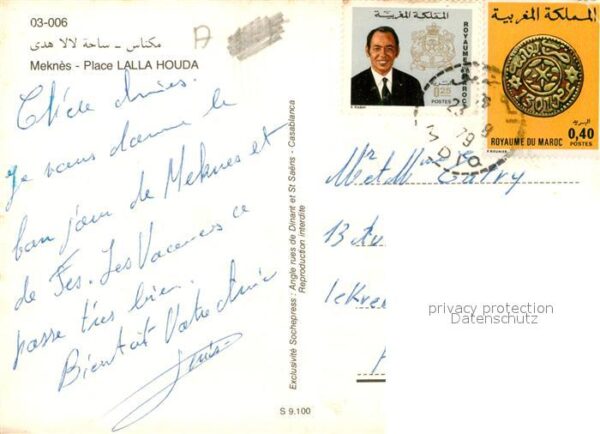 03-006
مكناس ـ ساحة لالا هدى
Meknès - Place LALLA HOUDA
A
Chère Amies.
Je vous donne le
bonjour de Meknes et
de Fes. Les Vacances ce
passe très bien.
Bientôt Votre Amie
Exclusivité Sochepress : Angle rues de Dinant et St Saëns - Casablanca
Reproduction interdite
S 9.100
المملكة المغربية
ROYAUME DU MAROC
0,25
POSTES
المملكة المغربية
ROYAUME DU MAROC
0,40
POSTES
Mr et Mme
13
privacy protection
Datenschutz